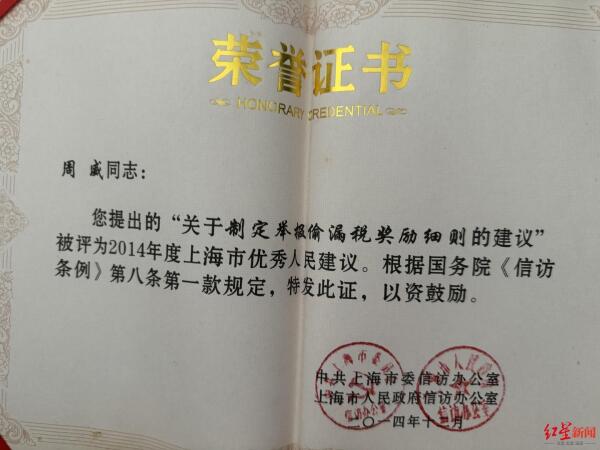 荣誉证书
HONORARY CREDENTIAL
周威同志：
您提出的“关于制定举报偷漏税奖励细则的建议”
被评为2014年度上海市优秀人民建议。根据国务院《信访
条例》第八条第一款规定，特发此证，以资鼓励。
中共上海市委信访办公室
上海市人民政府信访办公室
二〇一四年十二月
红星新闻